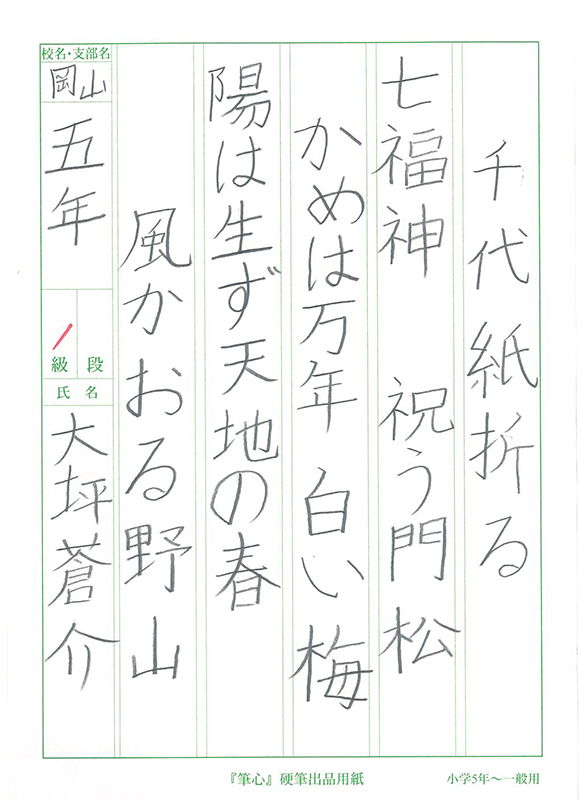 千代紙折る
七福神 祝う門松
かめは万年 白い梅
陽は生ず天地の春
風かおる野山
校名・支部名
岡山
五年
段
級
1
氏名
大坪蒼介
『筆心』硬筆出品用紙
小学5年〜一般用